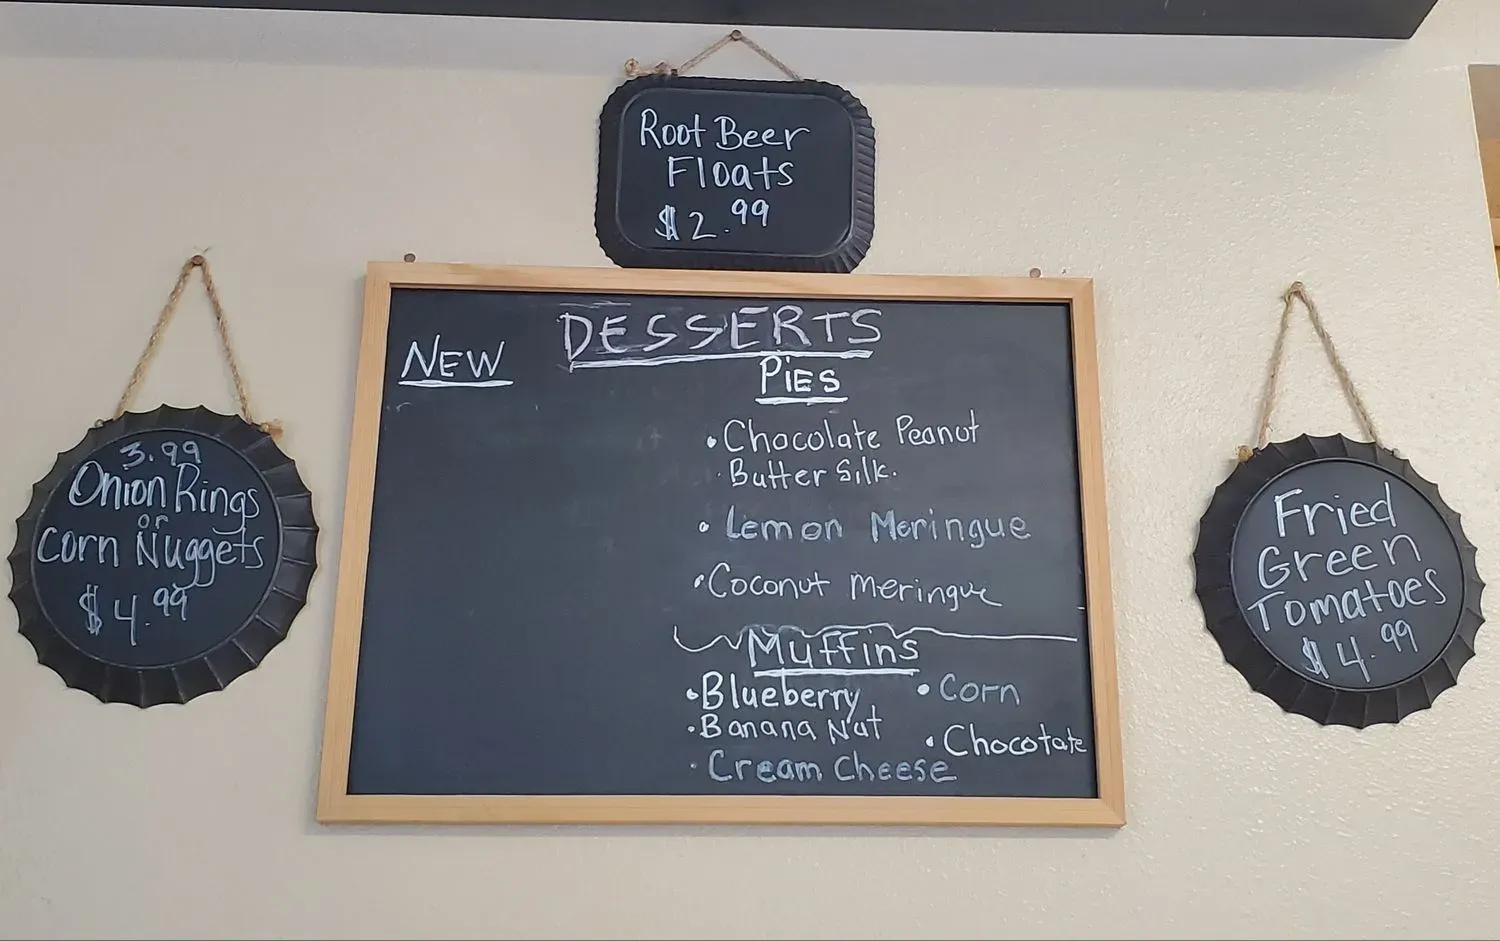 Root Beer
Floats
$2.99
3.99
Onion Rings
or
Corn Nuggets
$4.99
DESSERTS
NEW
PiES
• Chocolate Peanut
Butter Silk.
• Lemon Meringue
• Coconut Meringue
Muffins
• Blueberry
• Corn
• Banana Nut
• Chocotate
• Cream Cheese
Fried
Green
Tomatoes
$4.99